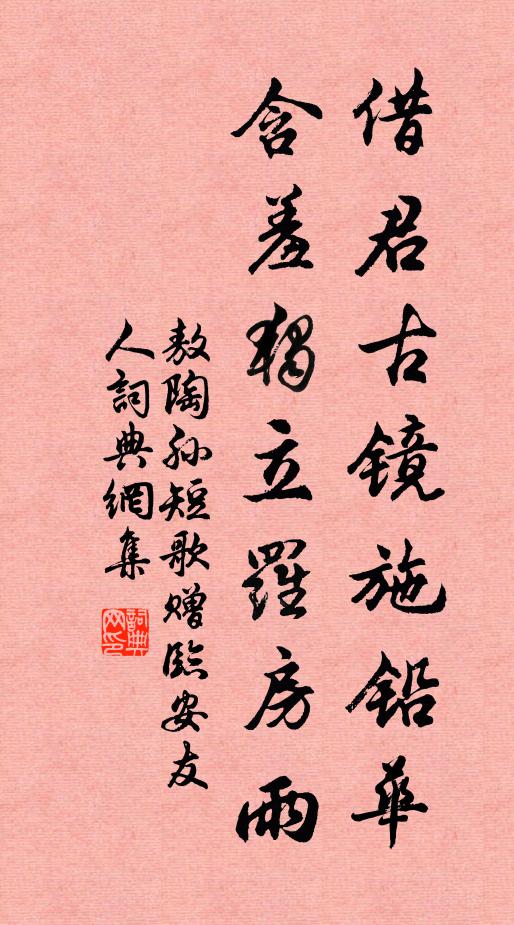 借君古镜施铅華
含羞獨立羅房雨
敖陶孙短歌赠臨安友
人詞典網集
詞典
网印